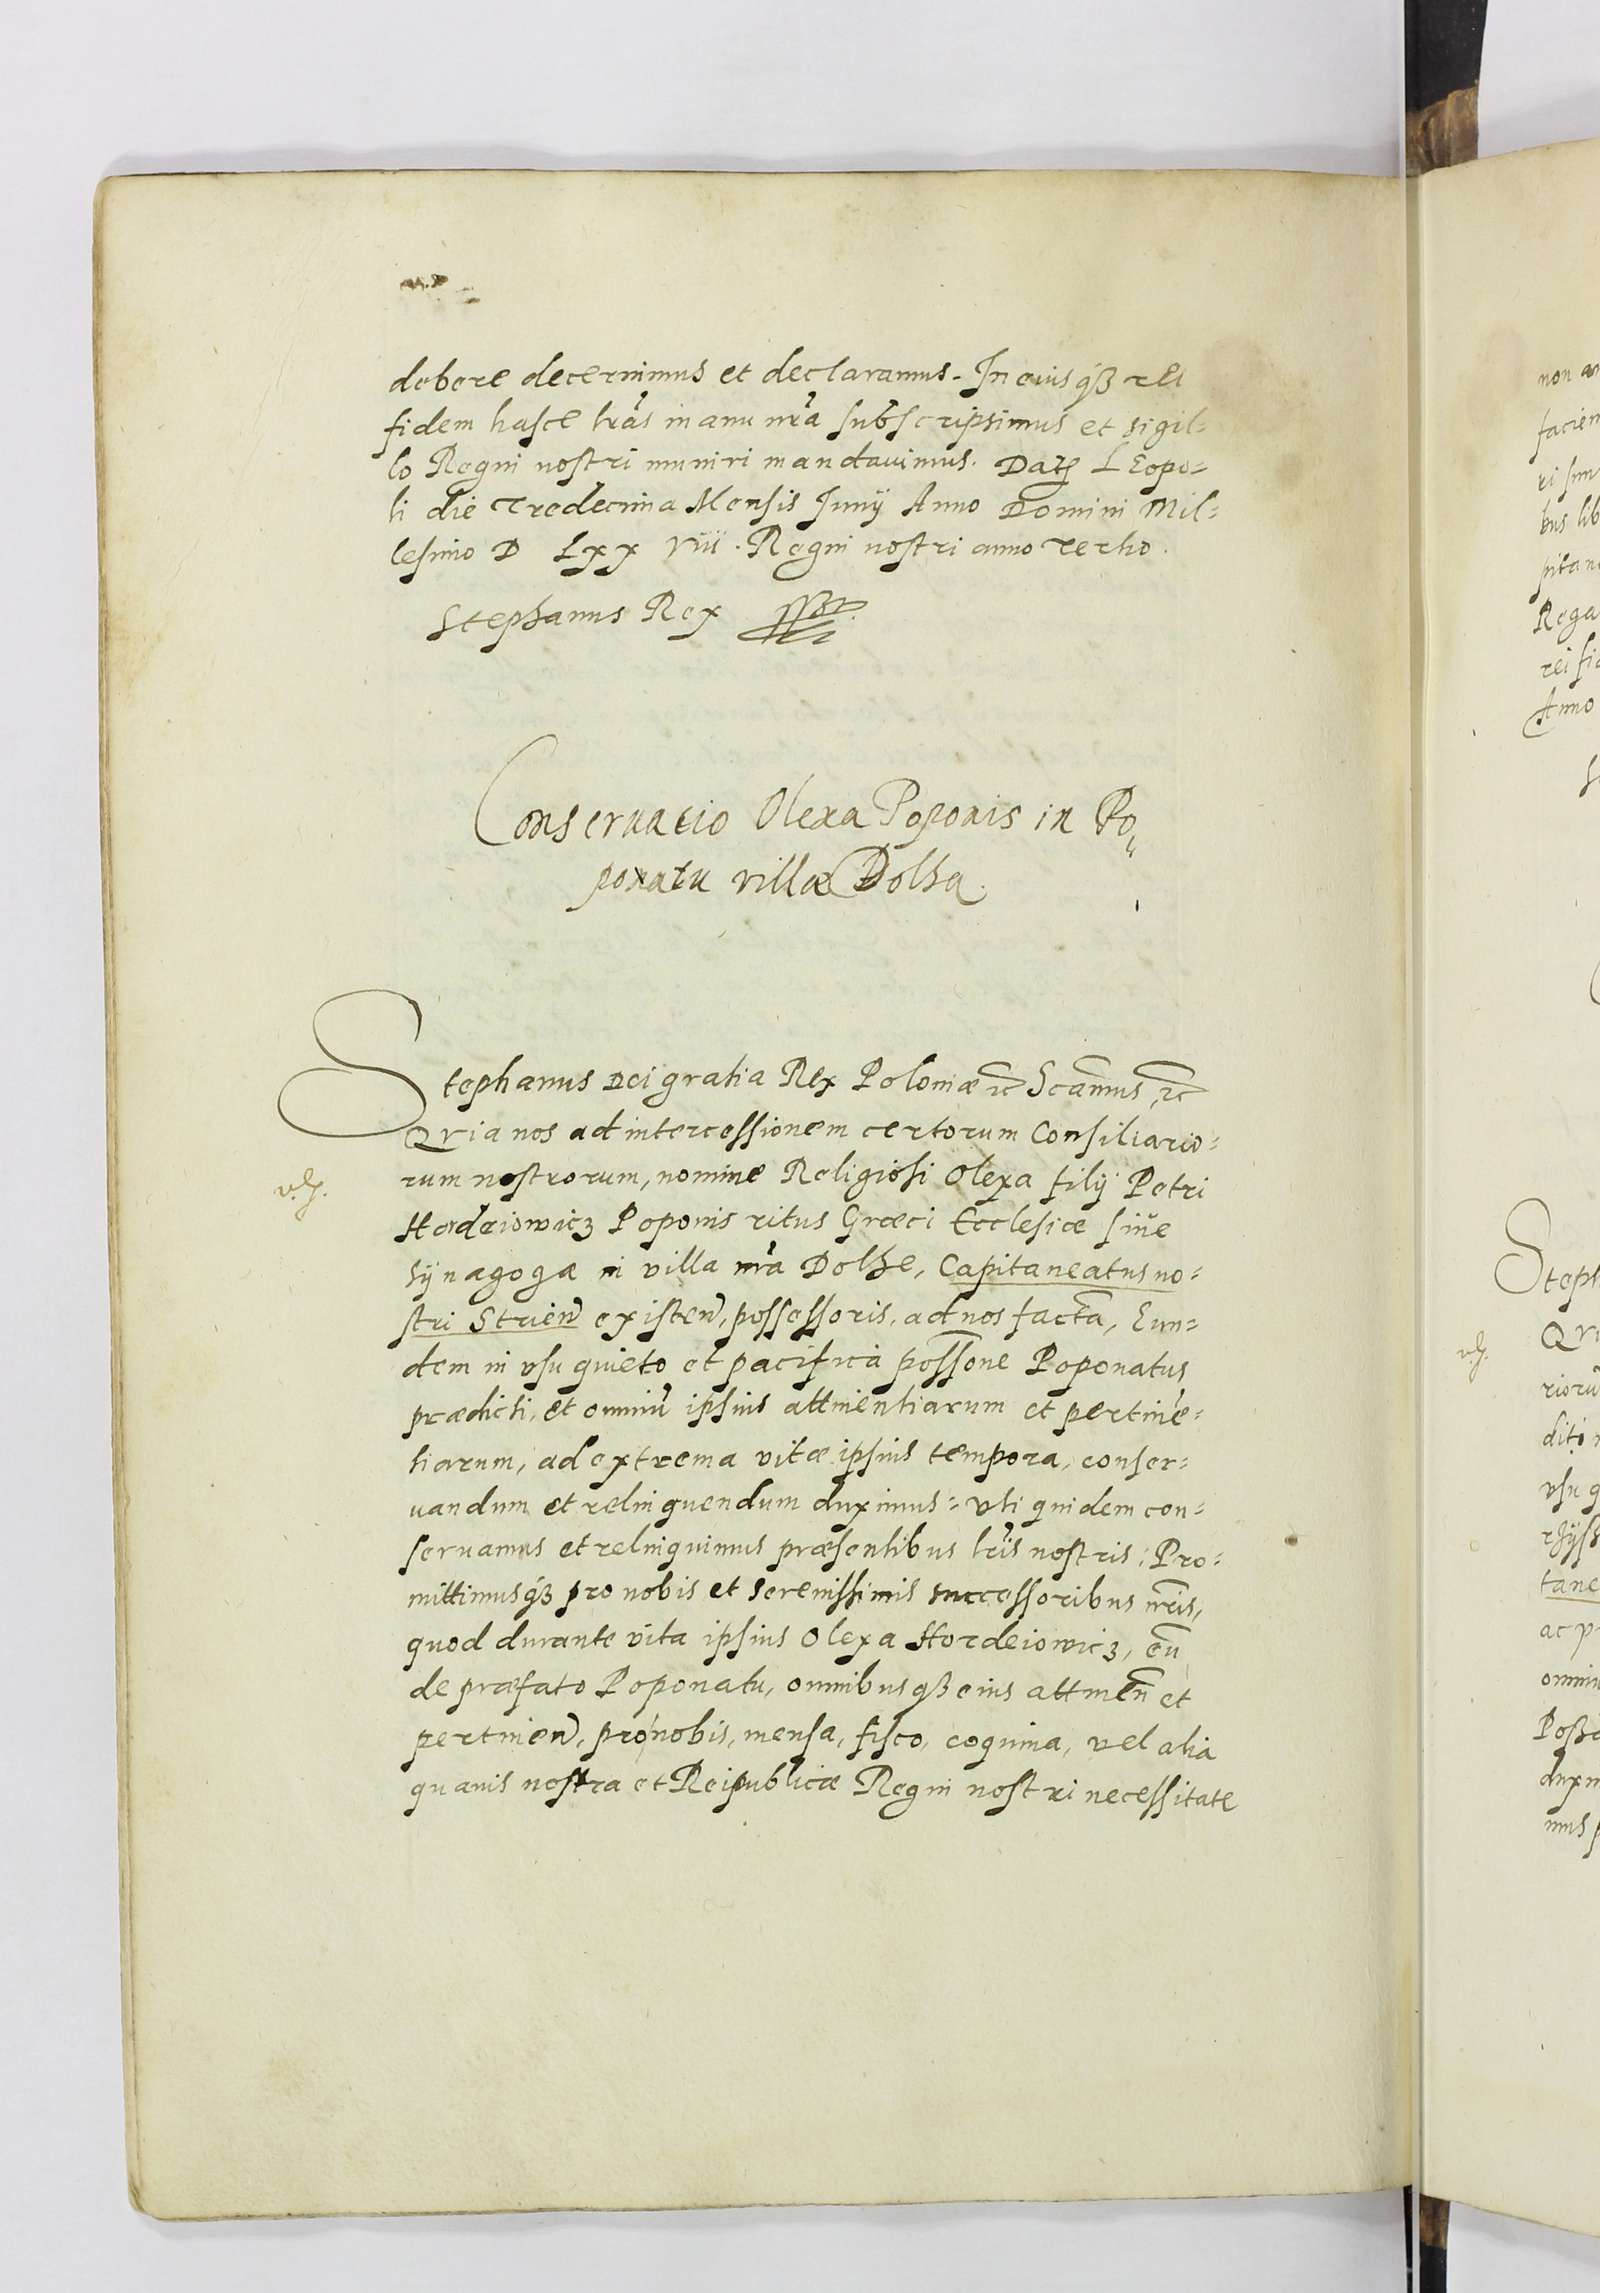 debere decernimus et declaramus. In cuius qȝ rei
fidem hasce lrãs manu nrã subscripsimus et sigil-
lo Regni nostri muniri mandauimus. Dat Leopo-
li die Tredecima Mensis Junij Anno Domini Mil-
lesimo D Lxx viii. Regni nostri anno Tertio.
Stephanus Rex
Conseruatio Olexa Poponis in Po-
ponatu villæ Dolha.
Stephanus Dei gratia Rex Poloniæ etc Scamus, etc
Quia nos ad intercessionem certorum Consiliario-
rum nostrorum, nomine Religiosi Olexa filij Petri
Hordeiowicz Poponis ritus Græci Ecclesiæ siue
Synagogæ in villa nrã Dolhe, Capitaneatus no-
stri Strien existen, possessoris, ad nos factã, Eun-
dem in vsu quieto et pacifica possone Poponatus
prædicti, et omniũ ipsius attinentiarum et pertinẽ-
tiarum, ad extrema vitæ ipsius tempora, conser-
uandum et relinquendum duximus: vti quidem con-
seruamus et relinquimus præsentibus lris nostris: Pro-
mittimusqȝ pro nobis et serenissimis successoribus nris,
quod durante vita ipsius Olexa Hordeiowicz, eũ
de præfato Poponatu, omnibusqȝ eius attinen et
pertinen, pro nobis, mensa, fisco, coquina, vel alia
quauis nostra et Reipublicæ Regni nostri necessitate
non
facien
ri sim
bus lib
pitan
Rega
rei fi
Anno
Steph
Qui
rioru
dito
vsu q
tane
ac p
omni
Posse
duxi
mus p